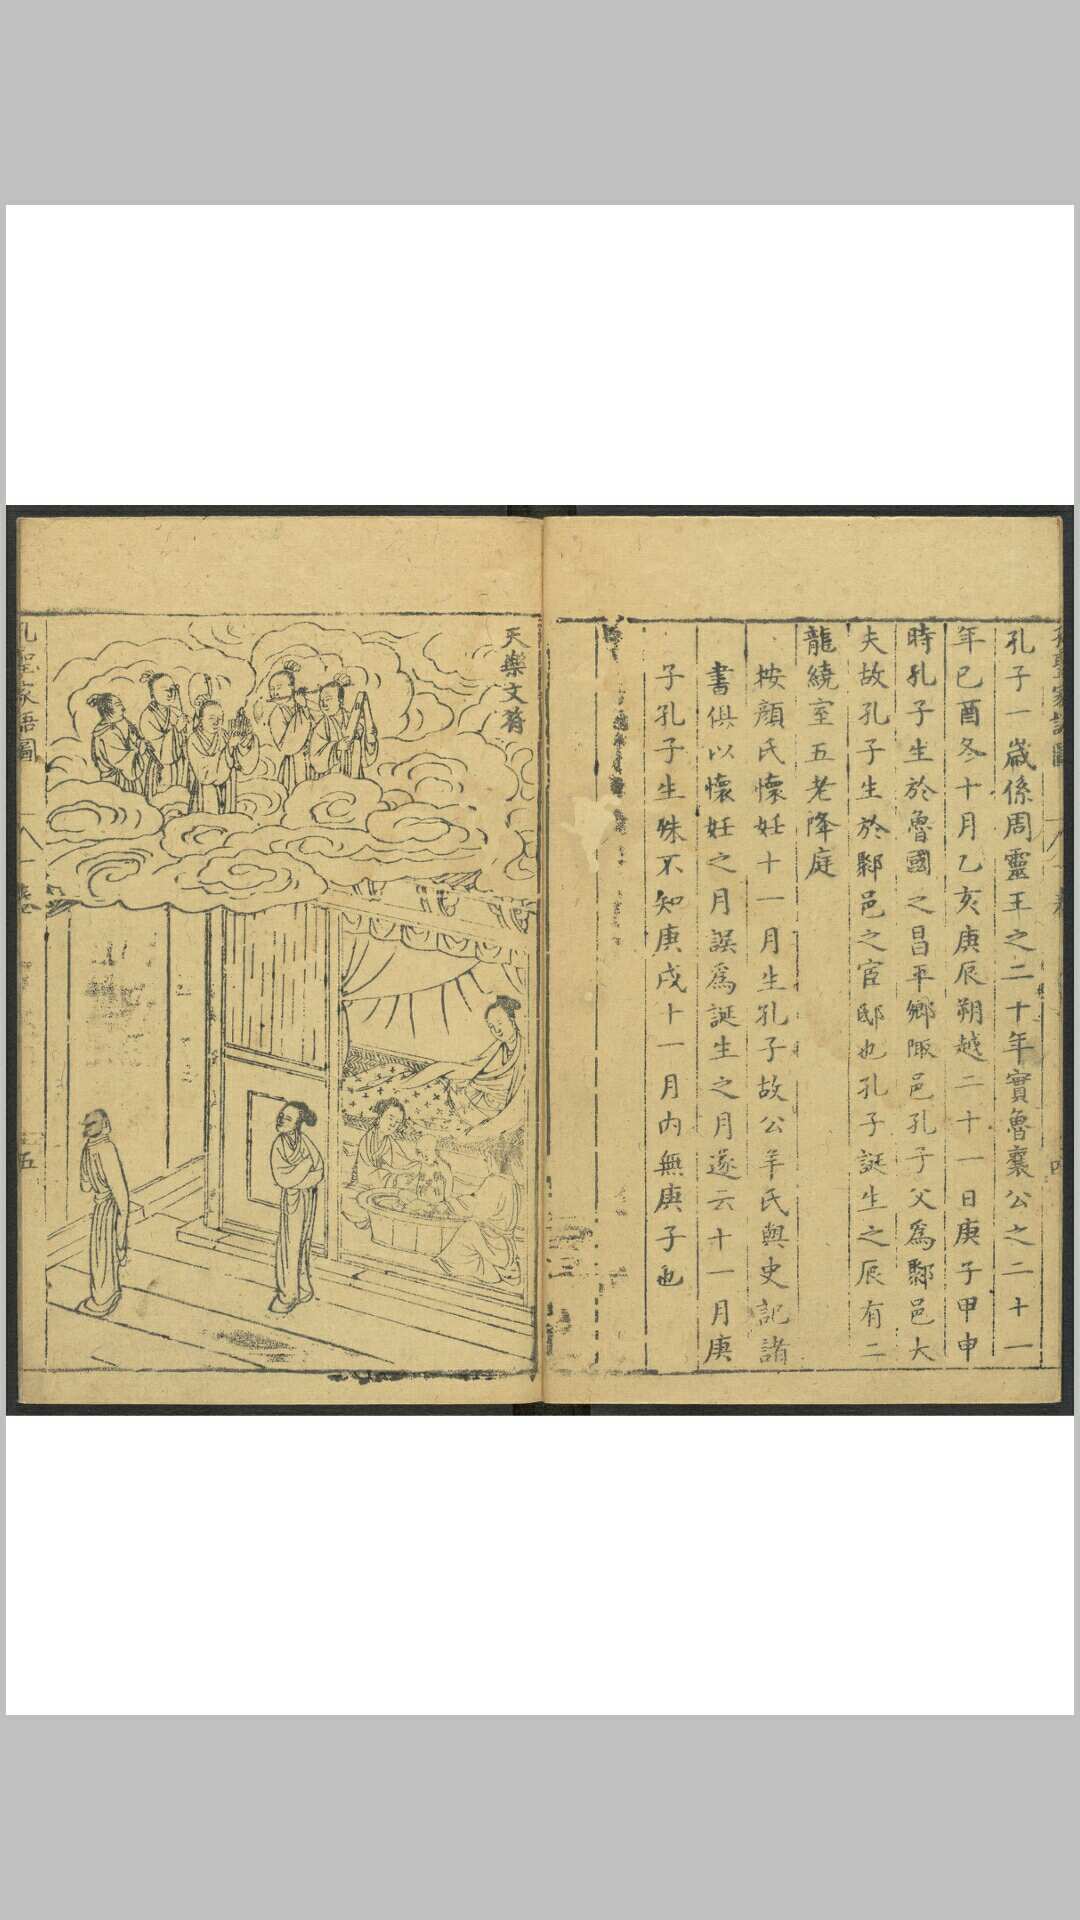 孔子一歲係周靈王之二十年實魯襄公之二十一
年己酉冬十月乙亥庚辰朔越二十一日庚子甲申
時孔子生於魯國之昌平鄉陬邑孔子父爲鄹邑大
夫故孔子生於鄹邑之宦邸也孔子誕生之辰有二
龍繞室五老降庭
按顔氏懷妊十一月生孔子故公羊氏與史記諸
書俱以懷妊之月誤爲誕生之月遂云十一月庚
子孔子生殊不知庚戌十一月內無庚子也
天樂文符
孔聖家語圖
五